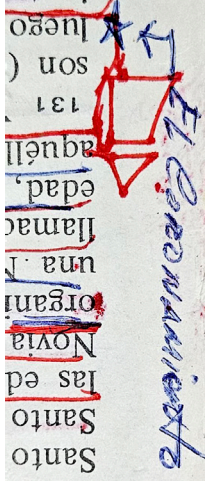 Santo
Santo
las ed
Novia
organi
una N
llamad
edad,
aquéll
131
son (
luego
El Coronamiento